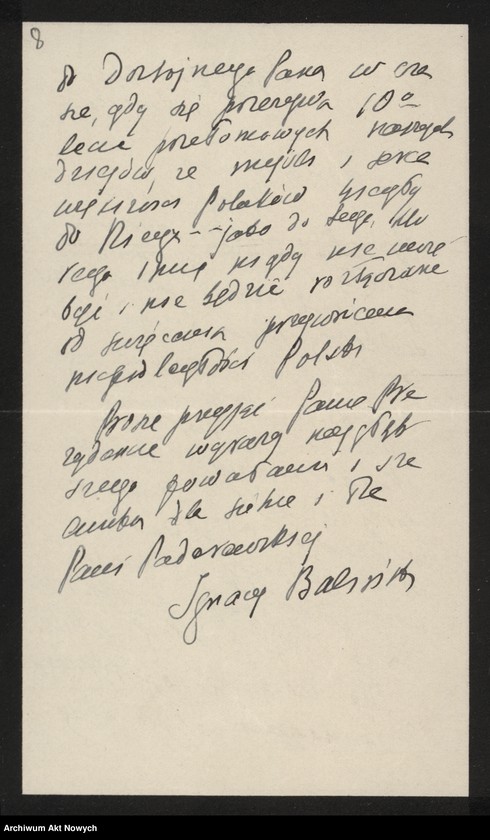 8
do Dostojnego Pana w cza
sie, gdy się przeżywa 10o
lecie przełomowych naszych
dziejów, że myśli i serca
większości Polaków biegły
do Niego -- jako do tego, któ
rego imię nigdy nie może
być i nie będzie rozłączone
od święcenia przywrócenia
niepodległości Polski
Proszę przyjąć Panie Pre
zydencie wyrazy najgłęb
szego poważania i sza
cunku dla siebie i dla
Pani Paderewskiej
Ignacy Baliński
Archiwum Akt Nowych